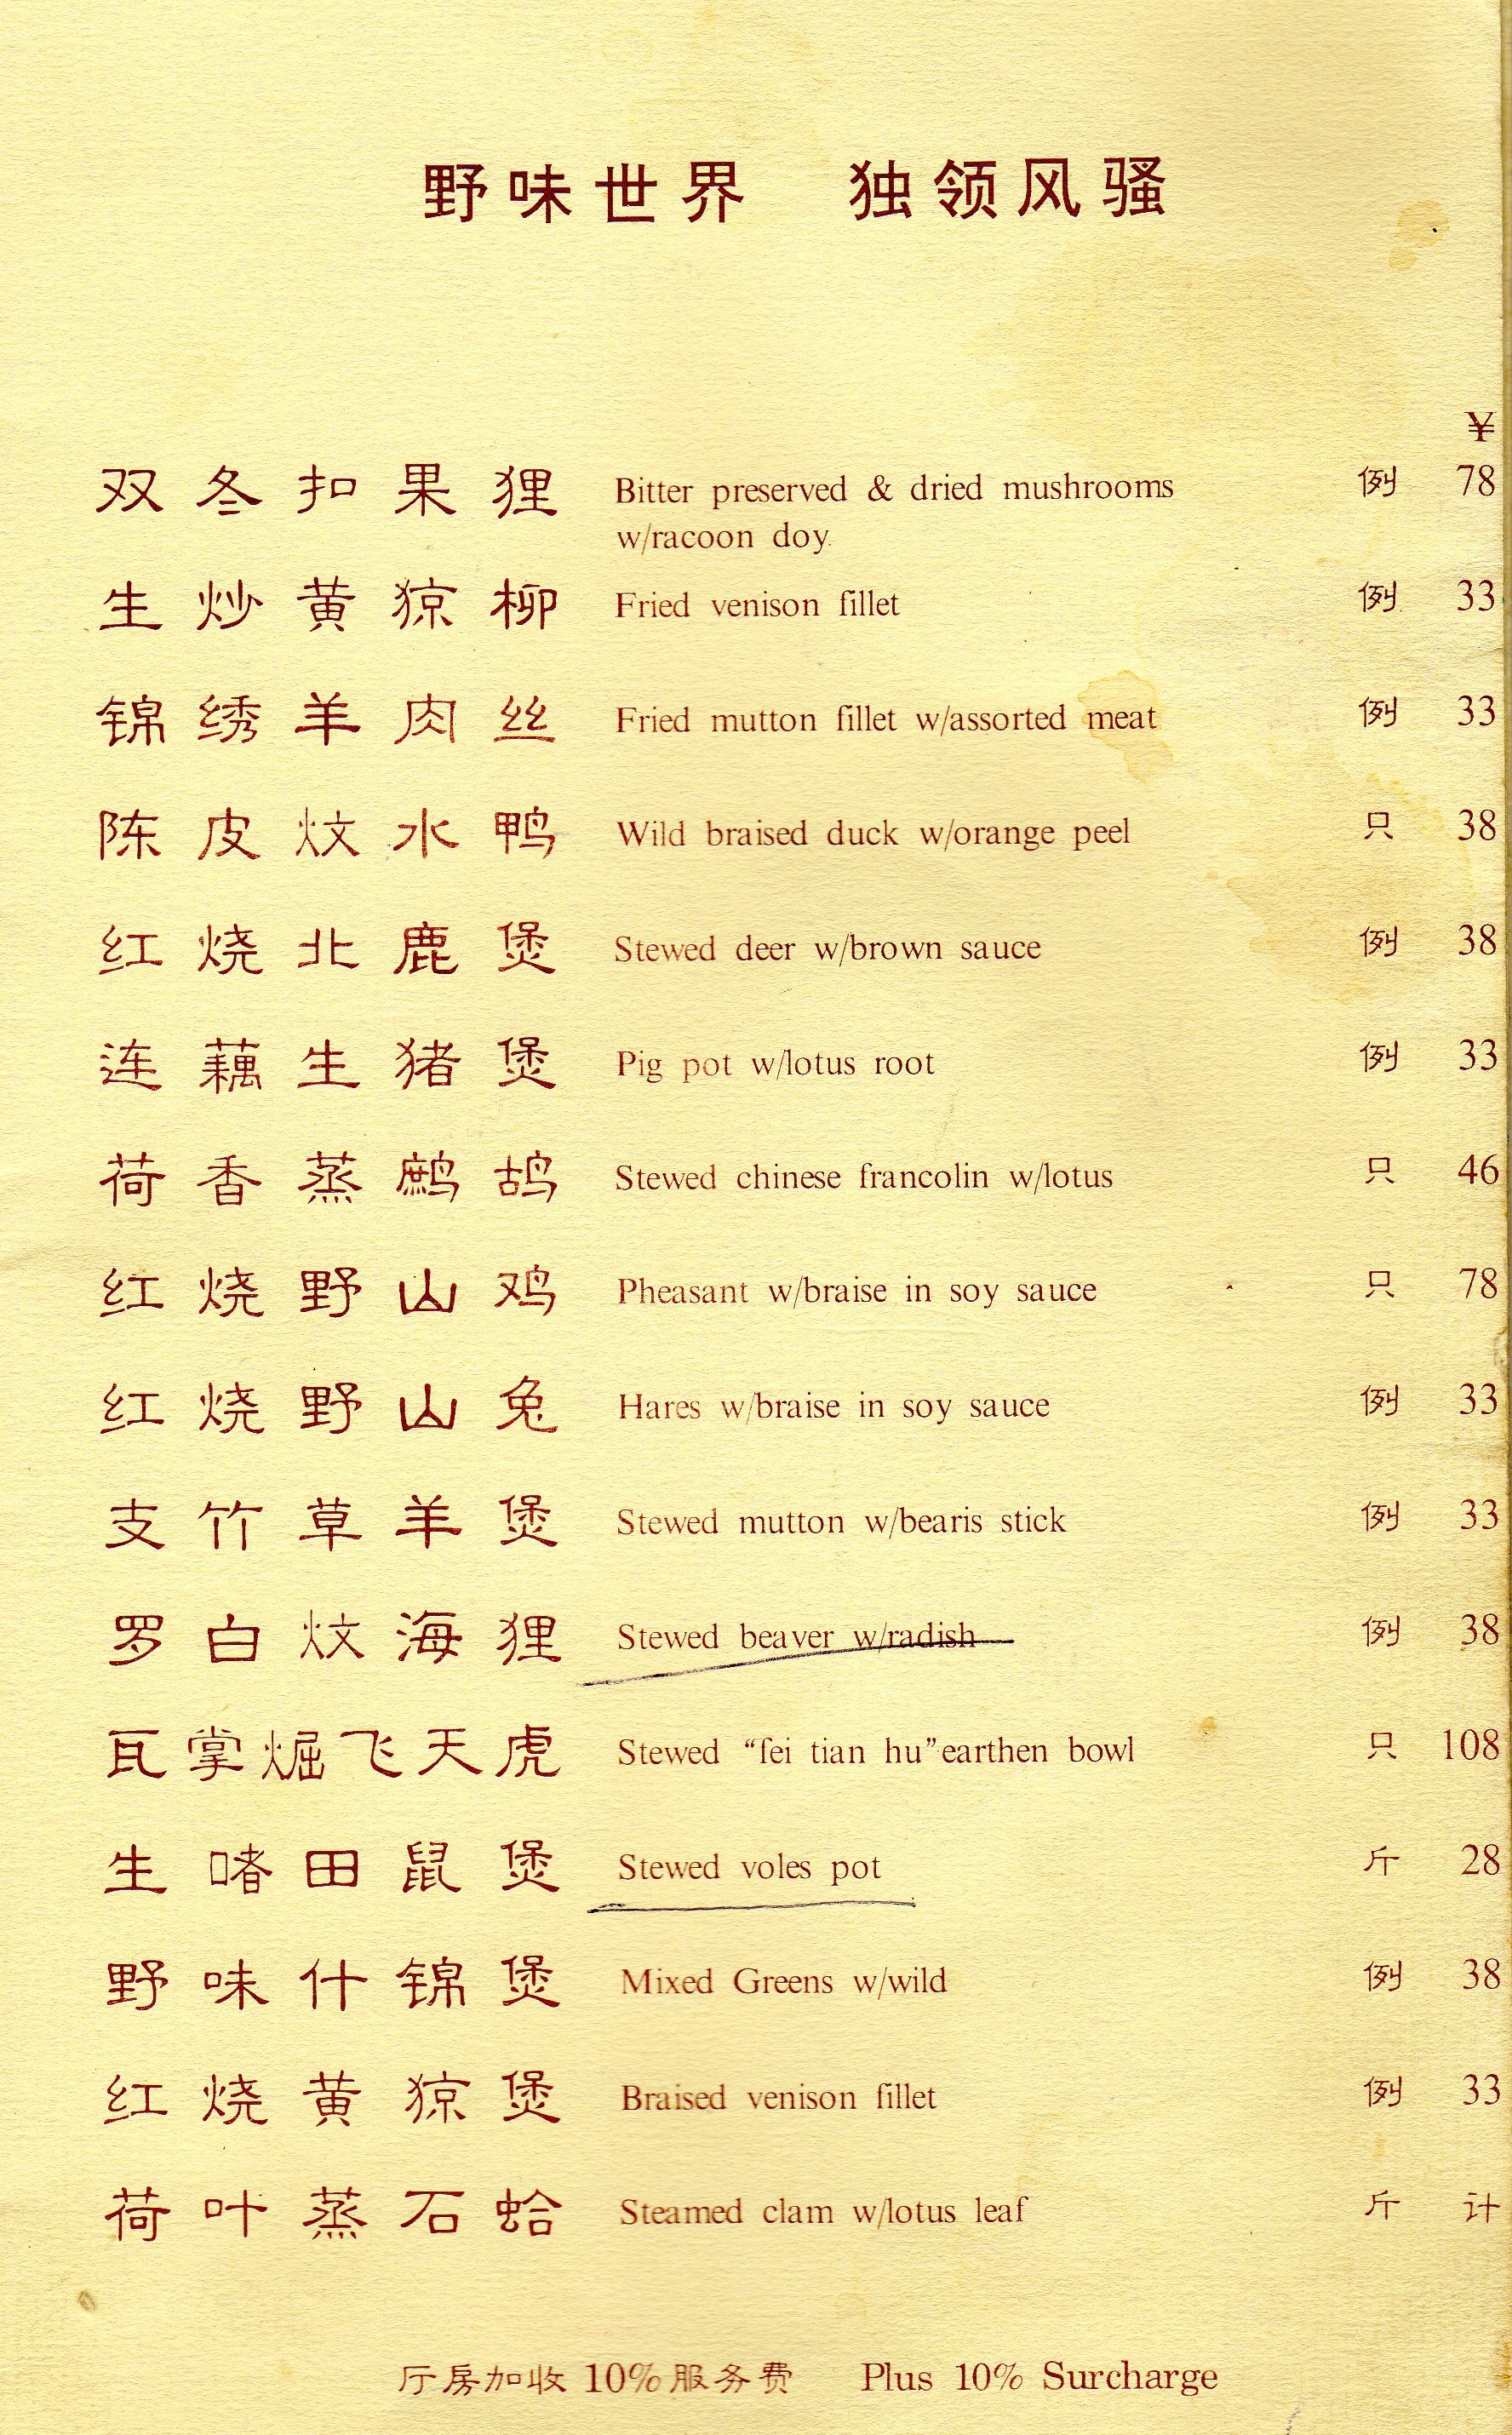 野味世界 独领风骚
¥
双冬扣果狸 Bitter preserved & dried mushrooms 例 78
w/racoon doy.
生炒黄猄柳 Fried venison fillet 例 33
锦绣羊肉丝 Fried mutton fillet w/assorted meat 例 33
陈皮炆水鸭 Wild braised duck w/orange peel 只 38
红烧北鹿煲 Stewed deer w/brown sauce 例 38
连藕生猪煲 Pig pot w/lotus root 例 33
荷香蒸鹧鸪 Stewed chinese francolin w/lotus 只 46
红烧野山鸡 Pheasant w/braise in soy sauce 只 78
红烧野山兔 Hares w/braise in soy sauce 例 33
支竹草羊煲 Stewed mutton w/bearis stick 例 33
罗白炆海狸 Stewed beaver w/radish 例 38
瓦掌焗飞天虎 Stewed “fei tian hu”earthen bowl 只 108
生啫田鼠煲 Stewed voles pot 斤 28
野味什锦煲 Mixed Greens w/wild 例 38
红烧黄猄煲 Braised venison fillet 例 33
荷叶蒸石蛤 Steamed clam w/lotus leaf 斤 计
厅房加收10%服务费 Plus 10% Surcharge